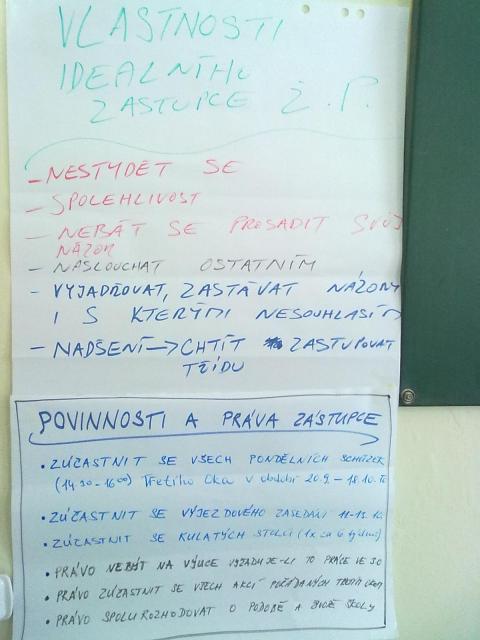 VLASTNOSTI
IDEALNÍHO
ZASTUPCE Ž.P.
- NESTYDĚT SE
- SPOLEHLIVOST
- NEBÁT SE PROSADIT SVŮJ
NÁZOR
- NASLOUCHAT OSTATNÍM
- VYJADŘOVAT, ZASTÁVAT NÁZORY
I S KTERÝMI NESOUHLASÍM
- NADŠENÍ → CHTÍT ZASTUPOVAT
TŘÍDU
POVINNOSTI A PRÁVA ZÁSTUPCE
• ZÚČASTNIT SE VŠECH PONDĚLNÍCH SCHŮZEK
(14 30 - 16 00) Třetího Oka v období 20.9. - 18.10.
• ZÚČASTNIT SE VÝJEZDOVÉHO ZASEDÁNÍ 11-13.10.
• ZÚČASTNIT SE KULATÝCH STOLŮ (1x za 6 týdnů)
• PRÁVO NEBÝT NA VÝUCE VYŽADUJE-LI TO PRÁCE VE
• PRÁVO ZÚČASTNIT SE VŠECH AKCÍ POŘÁDANÝCH TŘETÍM OKEM
• PRÁVO SPOLUROZHODOVAT O PODOBĚ A ŽIVOTĚ ŠKOLY